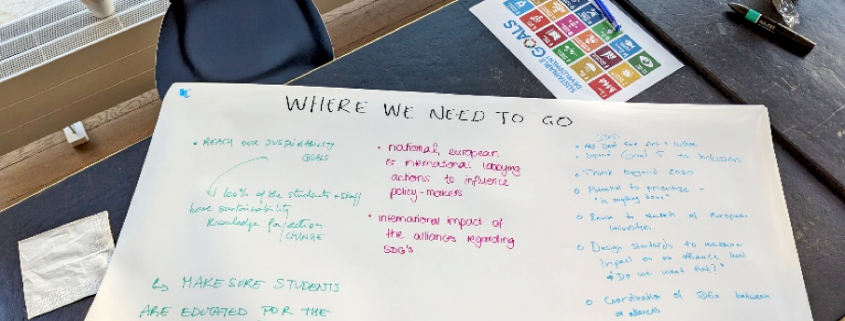 SUSTAINABLE
DEVELOPMENT
GOALS
WHERE WE NEED TO GO
• REACH OUR SUSTAINABILITY
GOALS
↳ 100% of the students + staff
have sustainability
knowledge for action
CHANGE
↳ MAKE SURE STUDENTS
ARE EDUCATED FOR THE
• national, european
& international lobbying
actions to influence
policy-makers
• international impact of
the alliances regarding
SDG's
Goal 5 to inclusion
• Think beyond 2030
• Potential to prioritize -
of european
universities.
• Design standards to measure
impact on an alliance level
Do we want that?"
• Coordination of SDGs between
alliances